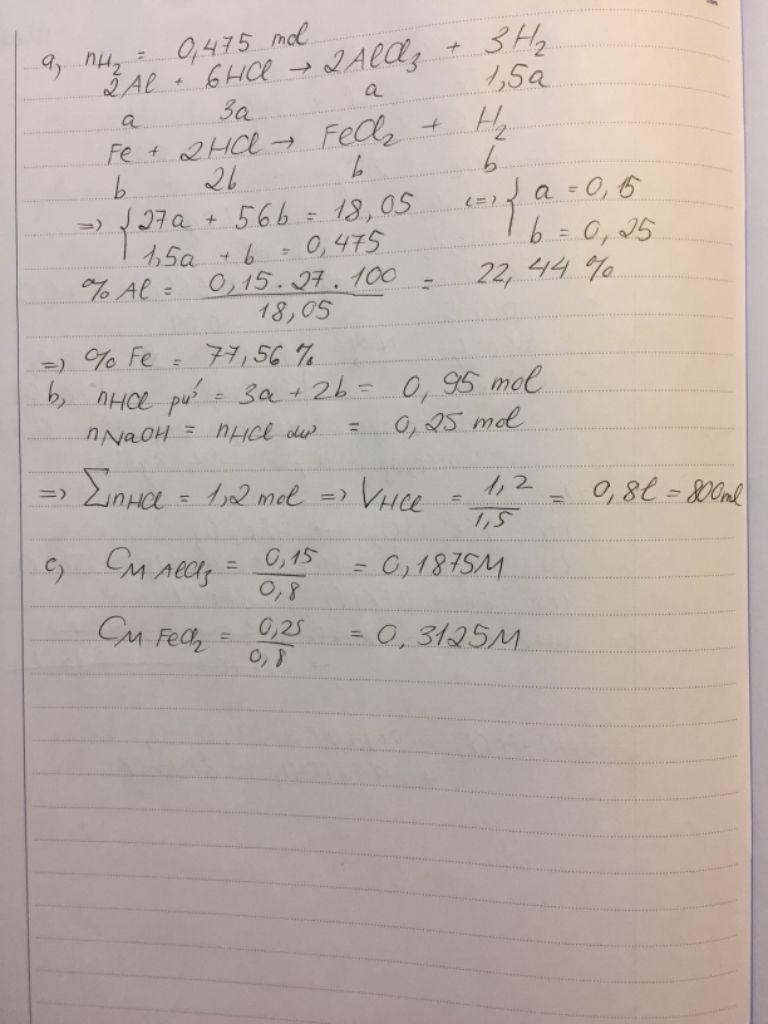 a, nH₂ = 0,475 mol
2Al + 6HCl → 2AlCl₃ + 3H₂
a 3a a 1,5a
Fe + 2HCl → FeCl₂ + H₂
b 2b b b
=> { 27a + 56b = 18,05 <=> { a = 0,15
1,5a + b = 0,475 b = 0,25
% Al = 0,15 . 27 . 100 / 18,05 = 22,44 %
=> % Fe = 77,56 %
b, nHCl pứ = 3a + 2b = 0,95 mol
nNaOH = nHCl dư = 0,25 mol
=> ΣnHCl = 1,2 mol => VHCl = 1,2 / 1,5 = 0,8l = 800ml
c, CM AlCl₃ = 0,15 / 0,8 = 0,1875M
CM FeCl₂ = 0,25 / 0,8 = 0,3125M